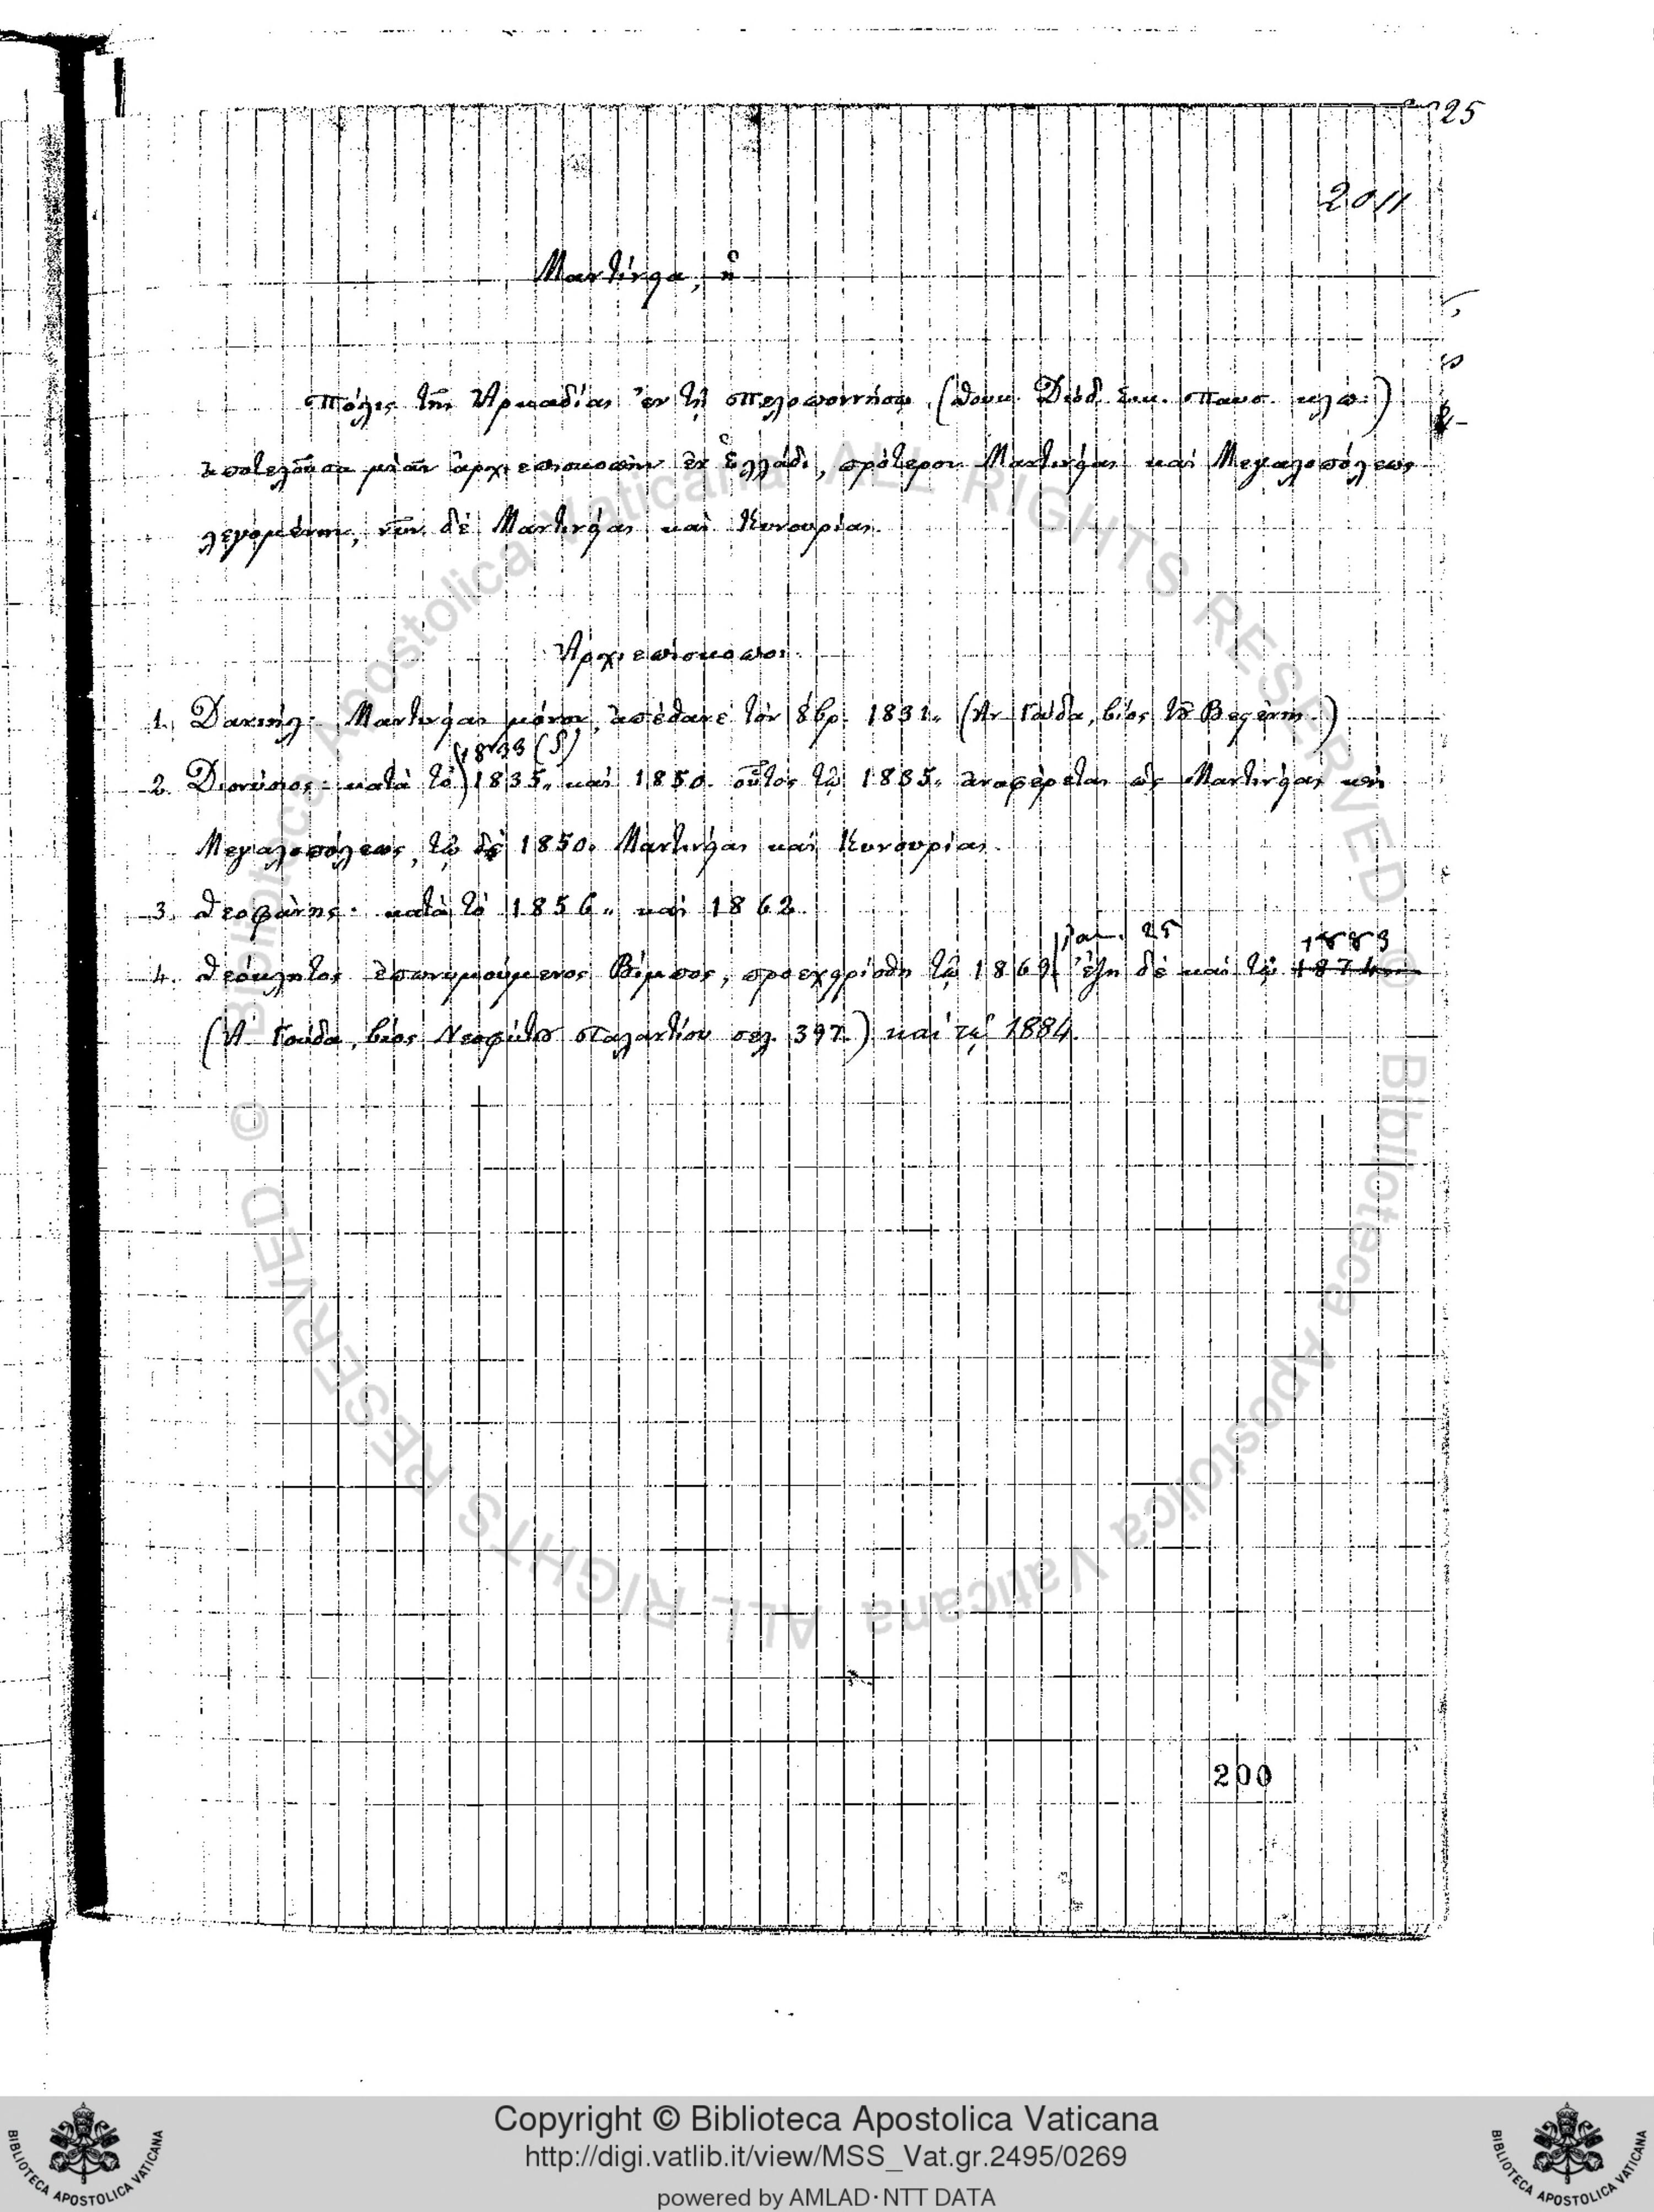 25
2011
Μαντίνεια, ἡ
Πόλις τῆς Ἀρκαδίας ἐν τῇ Πελοποννήσῳ (Θουκ. Διόδ. Σικ. Παυσ. κλπ.)
ἀποτελοῦσα μίαν ἀρχιεπισκοπὴν ἐν Ἑλλάδι, πρότερον Μαντινείας καὶ Μεγαλοπόλεως
λεγομένην, νῦν δὲ Μαντινείας καὶ Κυνουρίας.
Ἀρχιεπίσκοποι.
1. Δανιήλ· Μαντινείας μόνον, ἀπέθανε τὸν 8βρ. 1831. (Ἀν. Γούδα, βίος)
1833
2. Διονύσιος· κατὰ τὸ 1835, καὶ 1850. οὗτος τῷ 1835. ἀναφέρεται ὡς Μαντινείας καὶ
Μεγαλοπόλεως, τῷ δὲ 1850. Μαντινείας καὶ Κυνουρίας.
3. Θεοφάνης· κατὰ τὸ 1856. καὶ 1862.
25 1883
4. Θεόκλητος ἐπονομαζόμενος Βίμπος, προεχειρίσθη τῷ ἔζη δὲ καὶ τῷ 1874
(Ἀ. Γούδα, βίος Νεοφύτου σελ. 397.) καὶ τῷ 1884.
200
Copyright © Biblioteca Apostolica Vaticana
http://digi.vatlib.it/view/MSS_Vat.gr.2495/0269
powered by AMLAD·NTT DATA
BIBLIOTECA APOSTOLICA VATICANA
BIBLIOTECA APOSTOLICA VATICANA
© Biblioteca Apostolica Vaticana ALL RIGHTS RESERVED
© Biblioteca Apostolica Vaticana ALL RIGHTS RESERVED